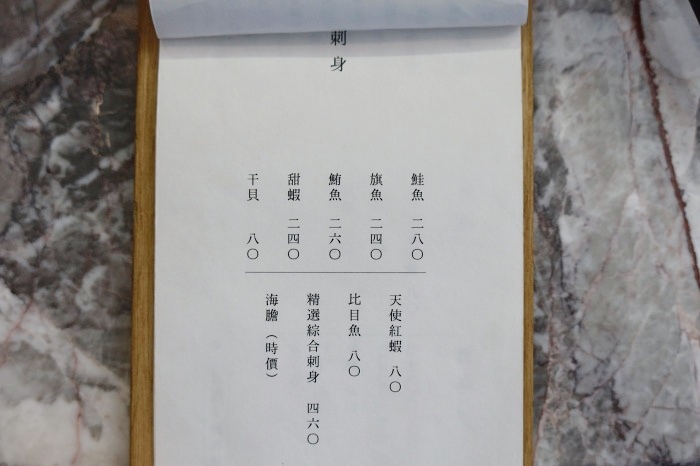 刺身
鮭魚 二八〇
旗魚 二四〇
鮪魚 二六〇
甜蝦 二四〇
干貝 八〇
天使紅蝦 八〇
比目魚 八〇
精選綜合刺身 四六〇
海膽（時價）